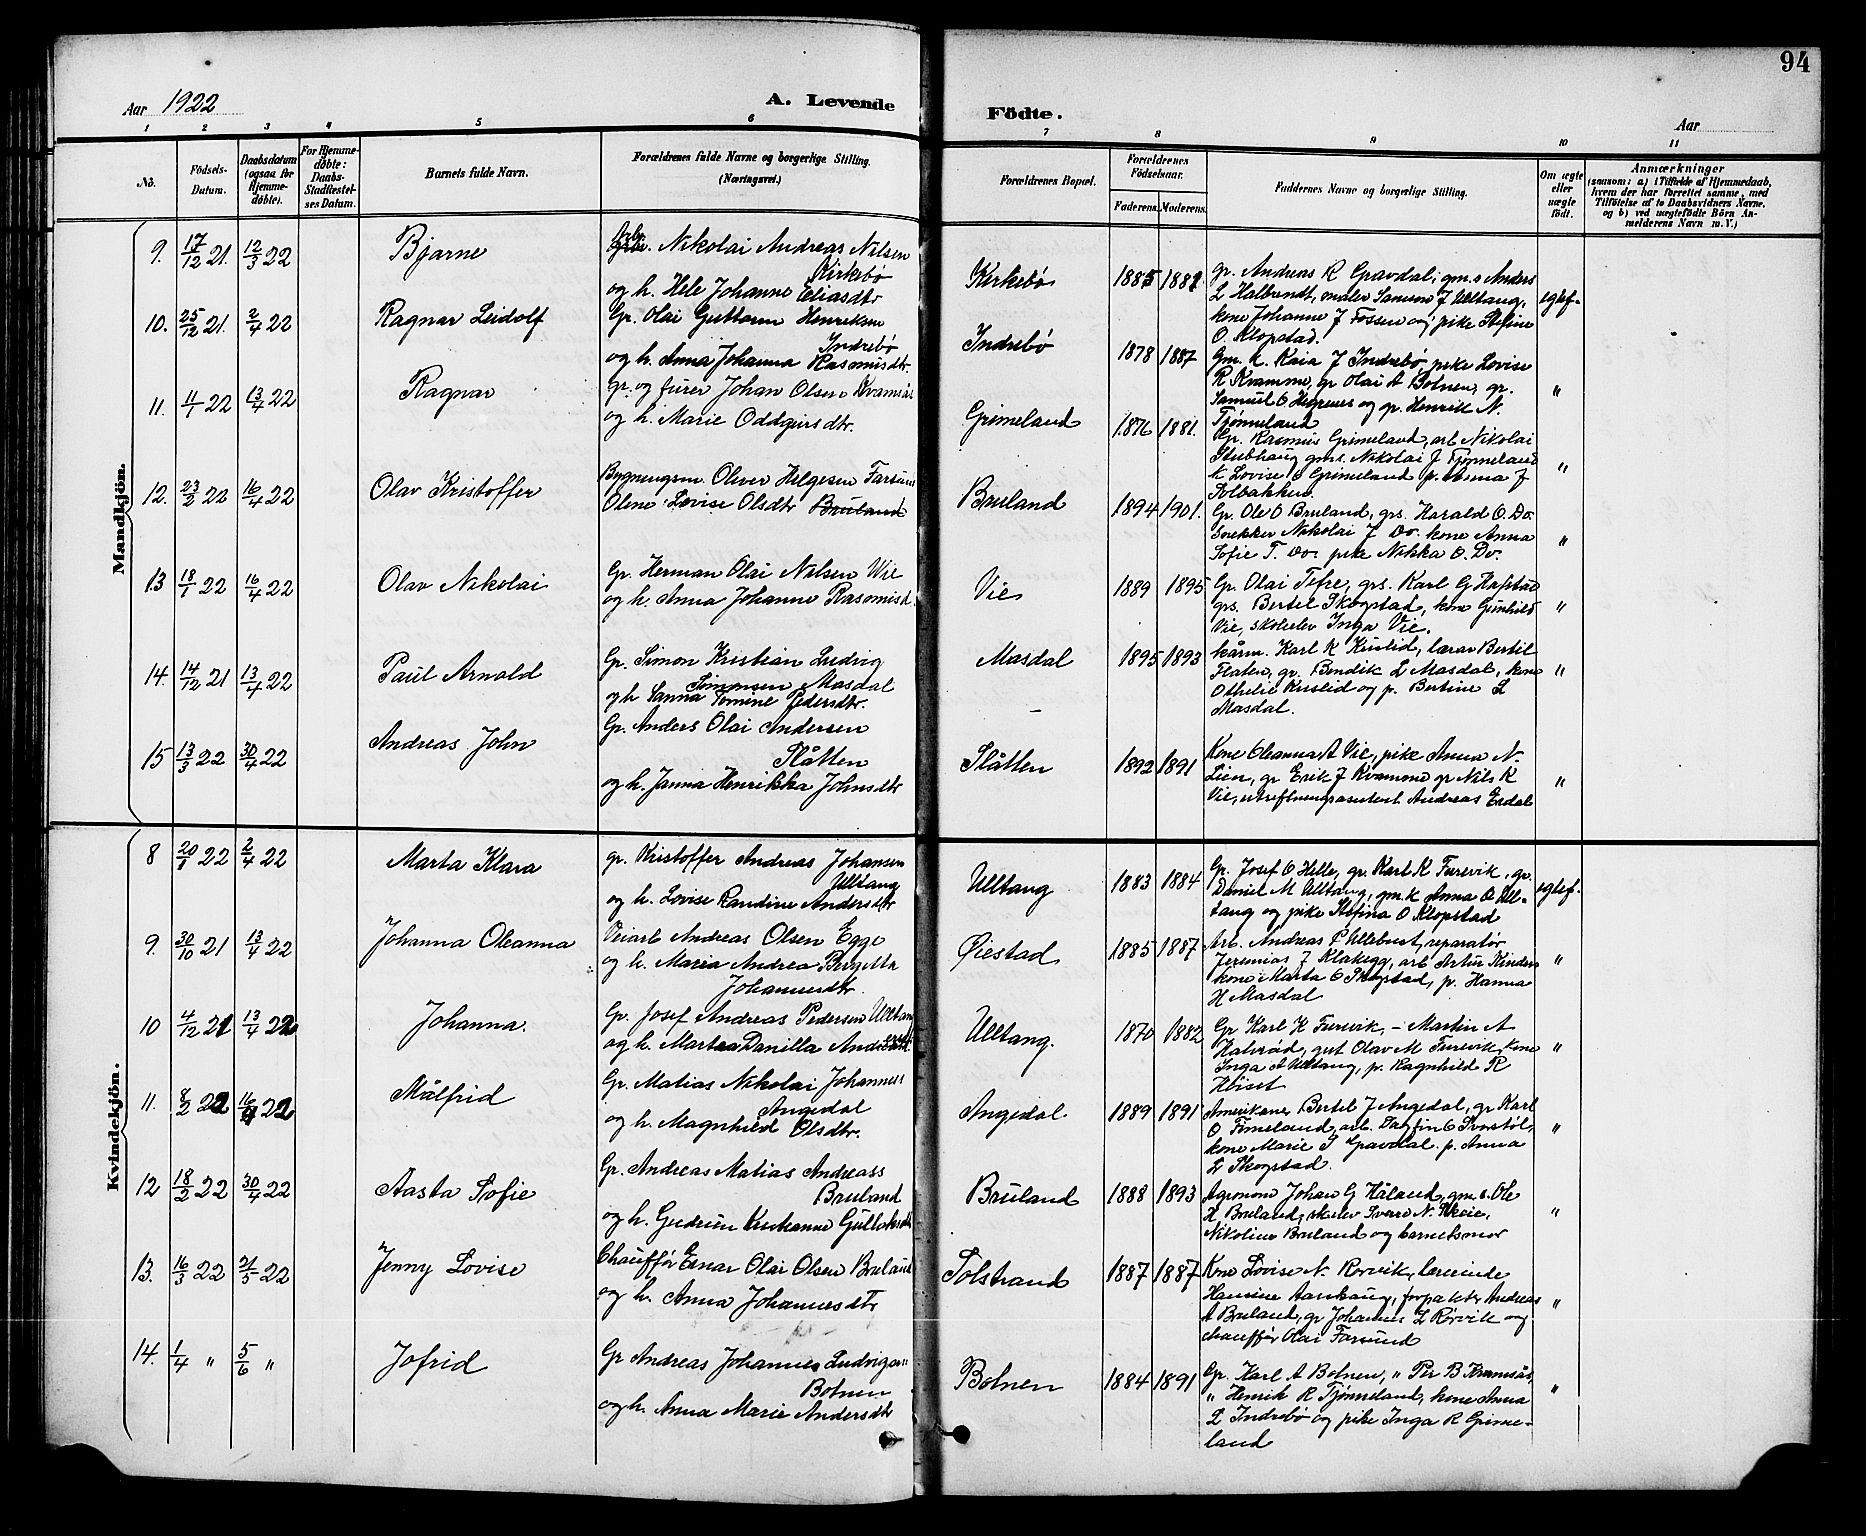 94
Aar 1922
A. Levende
Födte.
Aar
1 2 3 4 5 6 7 8 9 10 11
No.
Födsels-Datum.
Daabsdatum (ogsaa for Hjemme-döbte).
For Hjemme-döbte: Daabs-Stadfæstel-ses Datum.
Barnets fulde Navn.
Forældrenes fulde Navne og borgerlige Stilling.
(Næringsvei.)
Forældrenes Bopæl.
Forældrenes Födselsaar.
Faderens. Moderens.
Faddernes Navne og borgerlige Stilling.
Om ægte eller uægte födt.
Anmærkninger
(saasom: a) i Tilfælde af Hjemmedaab,
hvem der har forrettet samme, med
Tilföielse af to Daabsvidners Navne,
og b) ved uægtefödte Börn An-
melderens Navn m. V.)
Mandkjön.
9. 17/12 21. 12/3 22 Bjarne
Nikolai Andreas Nilsen
Kirkebø
og h. Hele Johanne Eliasdtr
Kirkebø 1885 1881
gr. Andreas R Gravdal, gm. s Anders
L Halbrendt, maler Samson J Ulltang,
kone Johanne J Fossen og pike Stefine
O. Klopstad.
egtef.
10. 25/12 21. 2/4 22 Ragnar Leidolf
Gr. Olai Guttorm Henriksen
Indrebø
og h. Anna Johanna Rasmusdtr
Indrebø 1878 1887
Gm. k. Kaia J Indrebø, pike Lovise
R Kvamme, gr Olai A Bolnen, gr.
Samuel O Hegrenes og gr. Henrik N.
Tjønneland
"
11. 11/1 22 13/4 22 Ragnar
gr. og furer Johan Olsen Kvamsås
og h. Marie Oddgeirsdtr.
Grimeland 1876 1881.
Gr. Rasmus Grimeland, arb Nikolai
Stubhaug gms. Nikolai J Tjønneland
k Lovise O Grimeland p. Anna J
Solbakken.
"
12. 23/2 22 16/4 22 Olav Kristoffer
Bygningsm. Oliver Helgesen Farsund
Olene Lovise Olsdtr Bruland
Bruland 1894 1901.
Gr. Ole O Bruland, grs. Harald O. Do.
Snekker Nikolai J Do. kone Anna
Sofie T. Do. pike Nikka O. Do.
"
13 18/1 22 16/4 22 Olav Nikolai
Gr. Herman Olai Nilsen Vie
og h. Anna Johanne Rasmusd.
Vie 1889 1895
Gr. Olai Tefre, grs. Karl G Hafstad
grs. Bertel Skogstad, kone Gunhild
Vie, skoleelev Inga Vie.
"
14. 14/12 21 13/4 22 Paul Arnold
Gr. Simon Kristian Ludvig
Simonsen Masdal
og h Sanna Tomine Pedersdtr.
Masdal 1895 1893
Karl K Kuslid, lærar Bertil
Flaten, gr. Bendik L Masdal, kone
Othelie Kuslid og p. Bertine L
Masdal.
"
15 13/3 22 30/4 22 Andreas John
Gr. Anders Olai Andersen
Slåtten
og h. Janna Henrikka Johnsdtr
Slåtten 1892 1891
Kone Oleanna A Vie, pike Anna N.
Lien, gr Erik J Kvamme gr Nils K
Vie, Andreas Erdal
"
Kvindekjön.
8 20/1 22 2/4 22 Marta Klara
gr. Kristoffer Andreas Johansen
Ulltang
og h. Lovise Randine Andersdtr
Ulltang 1883 1884
Gr. Josef O Helle, gr. Karl K Furevik, gr.
Daniel M Ulltang, gm. k Anna O Ull-
tang og pike Stefina O Klopstad
egtef.
9. 30/10 21 13/4 22 Johanna Oleanna
Veiarb Andreas Olsen Egge
og h. Maria Andrea Bergitta
Johannesdtr.
Øiestad 1885 1887
Arb. Andreas P Ullebust, reparatør
Jeremias J Klakegg, arb Artur Kinden
kone Marta O Skogstad, p. Hanna
H Masdal
"
10 4/12 21 13/4 22 Johanna.
Gr. Josef Andreas Pedersen Ulltang
og h. Martea Danilla
Ulltang. 1870 1882
Gr Karl K Furevik, – Martin A
Halvråd, gut Olav M Furevik, kone
Inga A Ulltang, p. Ragnhild R
"
11. 8/2 22 16/4 22 Målfrid
Gr. Matias Nikolai Johannes
Angedal
og h. Magnhild Olsdtr.
Angedal 1889 1891
Amerikaner Bertel J Angedal, gr Karl
O Fimeland, arb. Dagfin O Svastøl,
kone Marie S Gravdal p. Anna
L Skogstad.
"
12 18/2 22 30/4 22 Aasta Sofie
Gr. Andreas Matias Andreass
Bruland
og h. Gudrun Kristianne Gulleksdtr
Bruland 1888 1893
Agronom Johan G Håland, gm. s. Ole
K. Bruland, skulev Sverre N. Skeie,
Nikoline Bruland og barnetsmor
"
13. 16/3 22 21/5 22 Jenny Lovise
Chauffør Einar Olai Olsen Bruland
og h. Anna Johannesdtr
Solstrand 1887 1887
Kone Lovise N. Rørvik, lærerinde
Hansine Aarskaug, forpakter Andreas
A Bruland, gr Johannes L Rørvik og
chauffør Olai Farsund
"
14. 1/4 " 5/6 " Jofrid
Gr Andreas Johannes Ludvigsen
Bolnen
og h. Anna Marie Andersdtr
Bolnen 1884 1891
Gr. Karl A Bolnen, " Per B Kvamsås,
" Henrik R Tjønneland, kone Anna
L Indrebø og pike Inga R Grime-
land
"